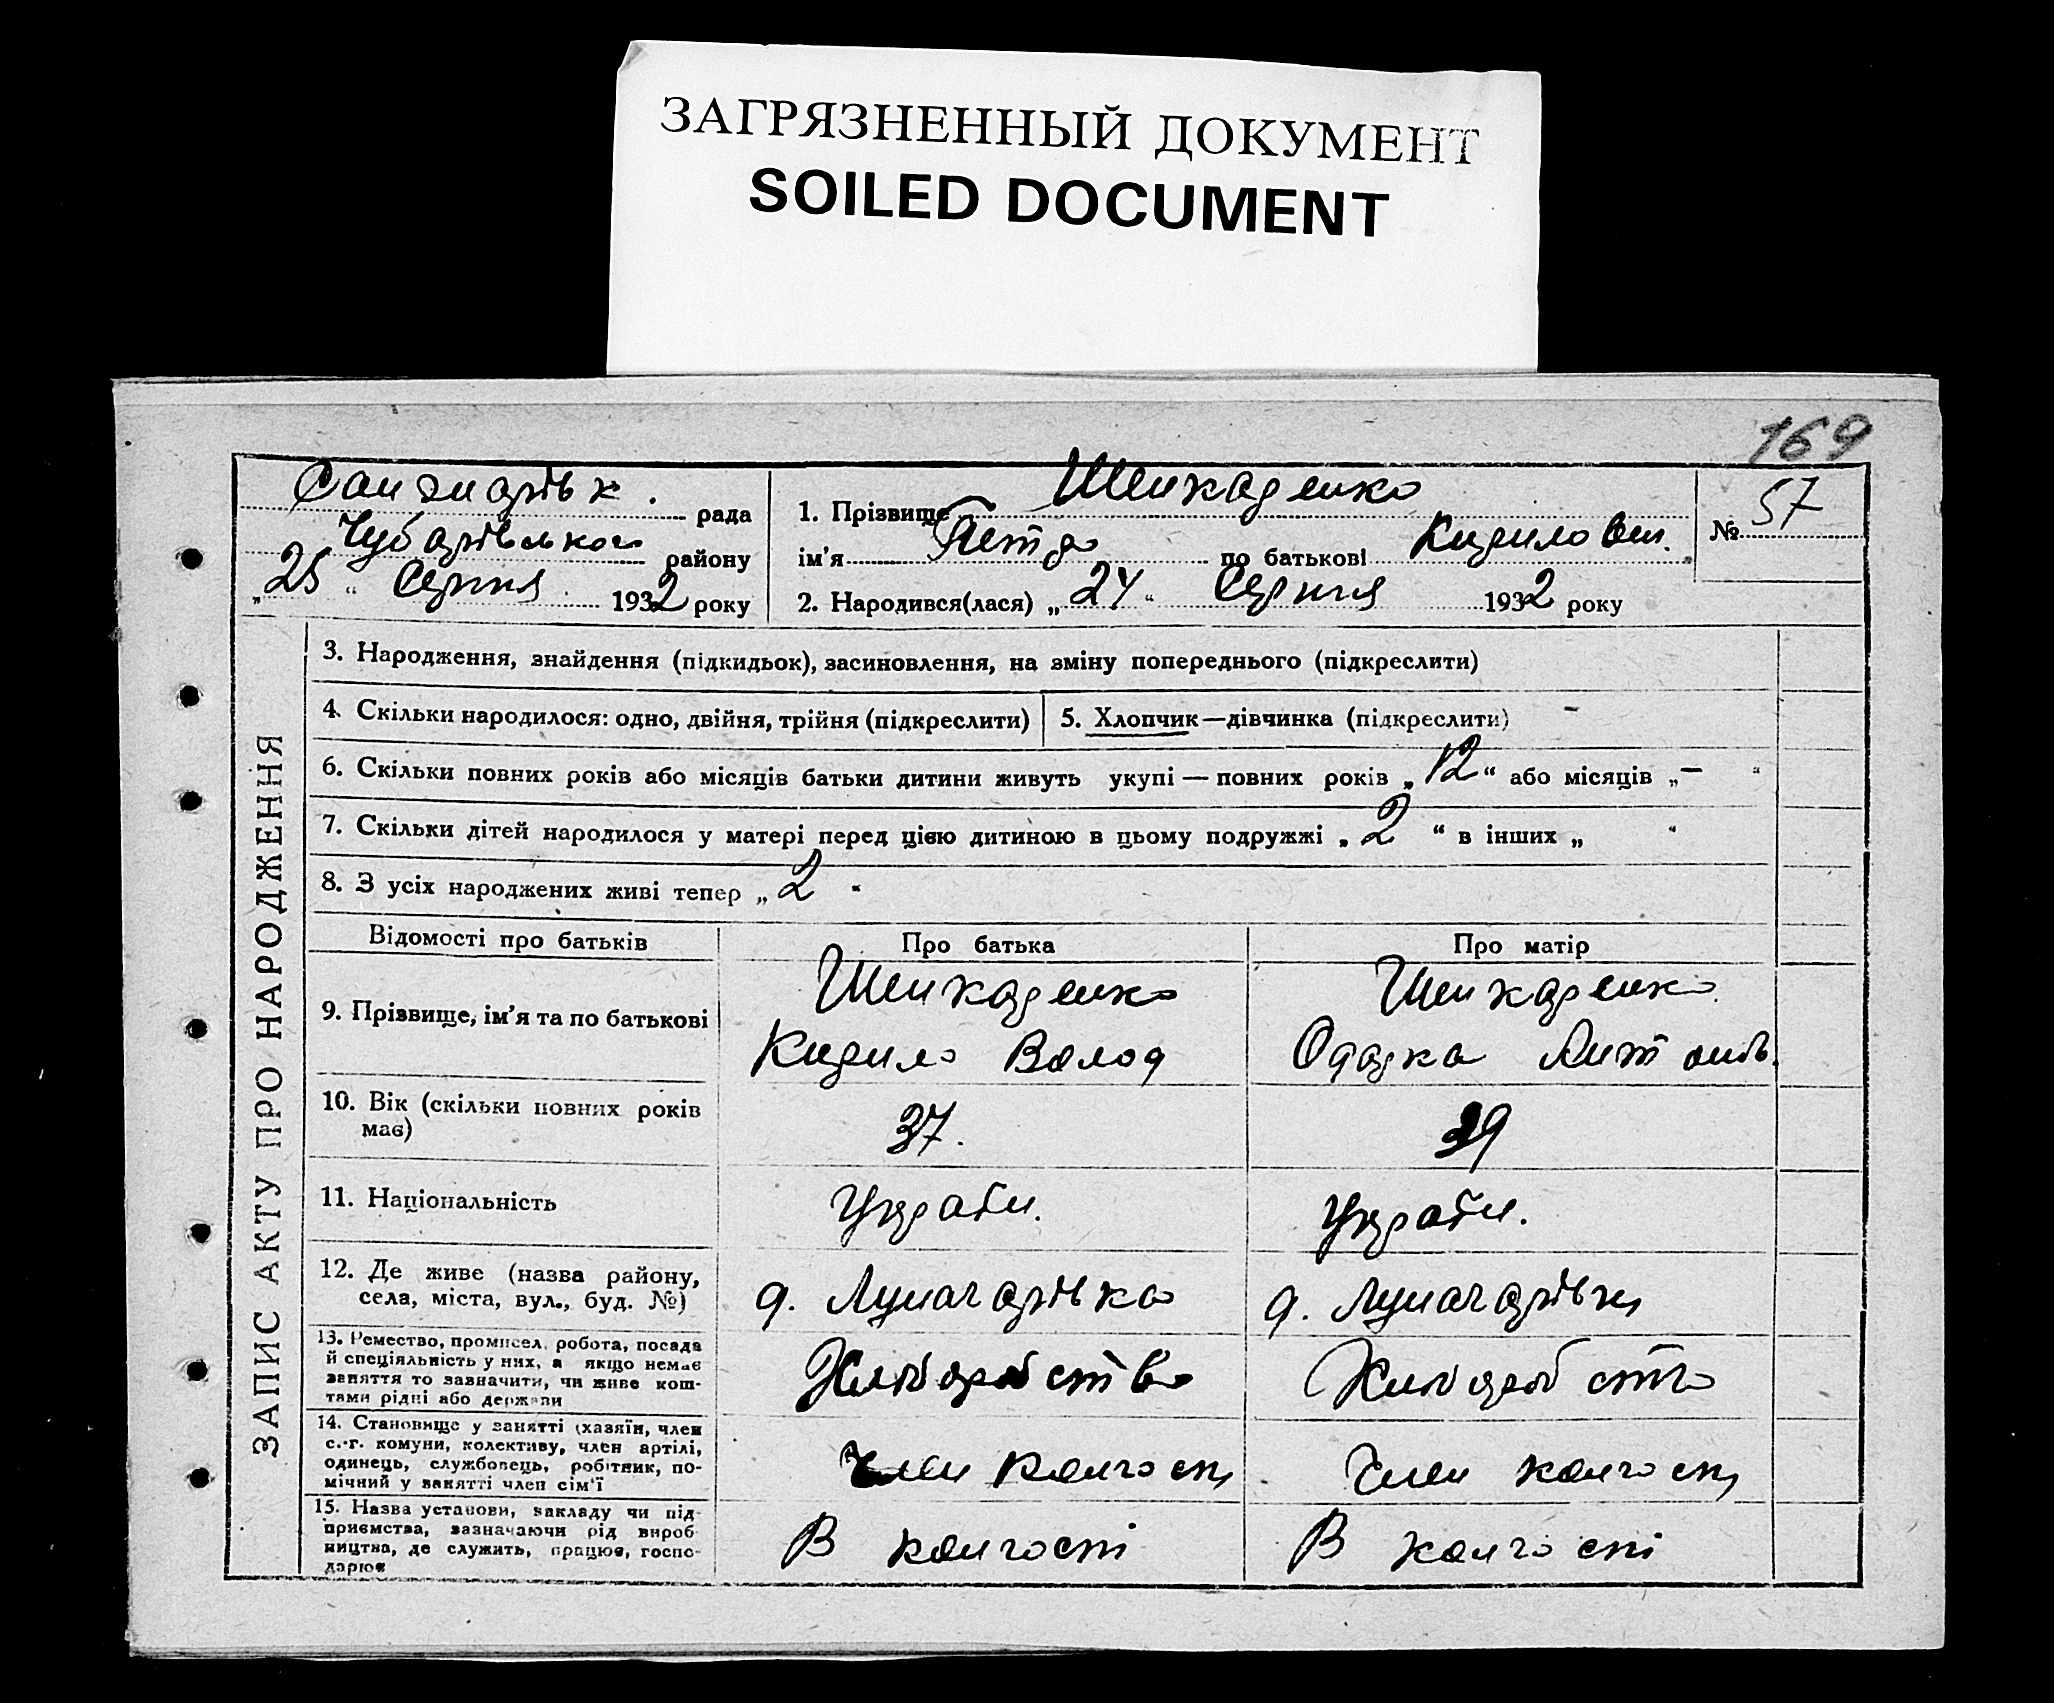 ЗАГРЯЗНЕННЫЙ ДОКУМЕНТ
SOILED DOCUMENT
169
рада
Чубарівського району
„25“ Серпня 1932 року
1. Прізвище Шинкаренко
ім'я Петро по батькові Кирилович.
2. Народився(лася) „24“ Серпня 1932 року
№ 57
ЗАПИС АКТУ ПРО НАРОДЖЕННЯ
3. Народження, знайдення (підкидьок), засиновлення, на зміну попереднього (підкреслити)
4. Скільки народилося: одно, двійня, трійня (підкреслити)
5. Хлопчик—дівчинка (підкреслити) -
6. Скільки повних років або місяців батьки дитини живуть укупі — повних років „12“ або місяців „—“
7. Скільки дітей народилося у матері перед цією дитиною в цьому подружжі „2“ в інших „ “
8. З усіх народжених живі тепер „2“
Відомості про батьків
Про батька
Про матір
9. Прізвище, ім'я та по батькові
Шинкаренко
Кирило Волод
Шинкаренко
Одарка Антонів.
10. Вік (скільки повних років
має)
37.
39
11. Національність
Україн.
Україн.
12. Де живе (назва району,
села, міста, вул., буд. №)
д. Луначарівка
д. Луначарівка
13. Ремество, промисел, робота, посада
й спеціяльність у них, а якщо немає
заняття то зазначити, чи живе кош-
тами рідні або держави
Хліборобство
Хліборобство
14. Становище у занятті (хазяїн, член
с.-г. комуни, колективу, член артілі,
одинець, службовець, робітник, по-
мічний у занятті член сім'ї
Член колгосп
Член колгосп
15. Назва установи, закладу чи під-
приємства, зазначаючи рід вироб-
ництва, де служить, працює, госпо-
дарює
В колгоспі
В колгоспі